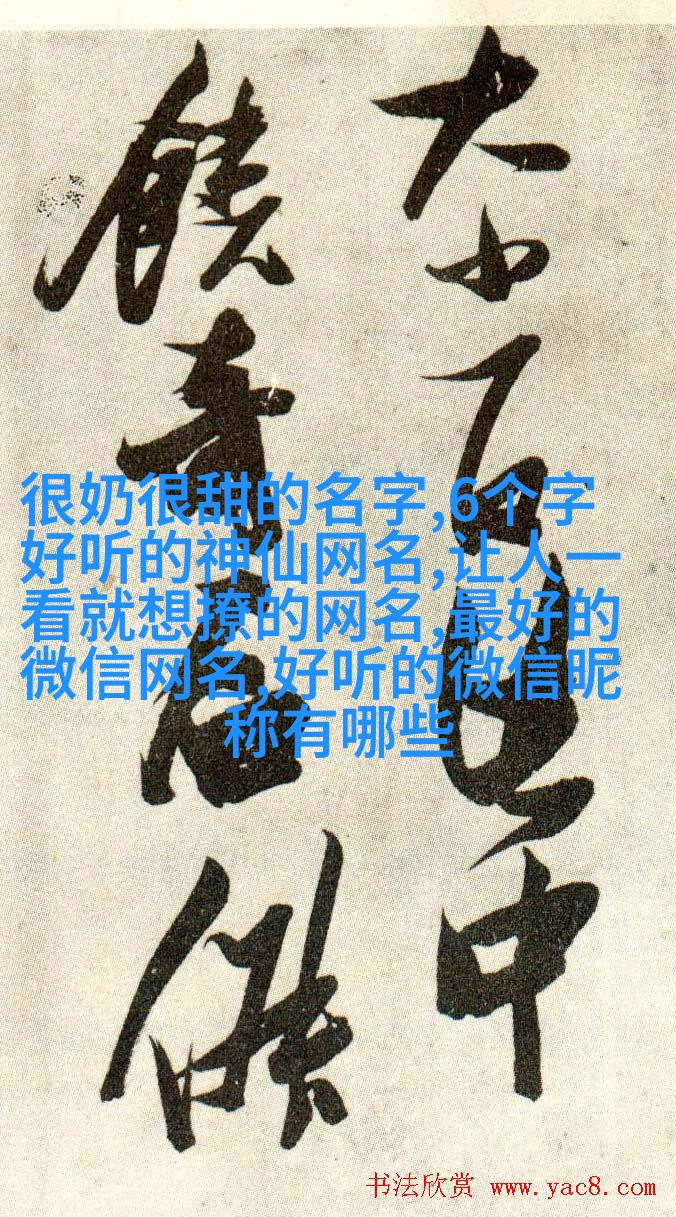 大小中
很奶很甜的名字,6个字
好听的神仙网名,让人一
看就想撩的网名,最好的
微信网名,好听的微信昵
称有哪些
书法欣赏 www.yac8.com